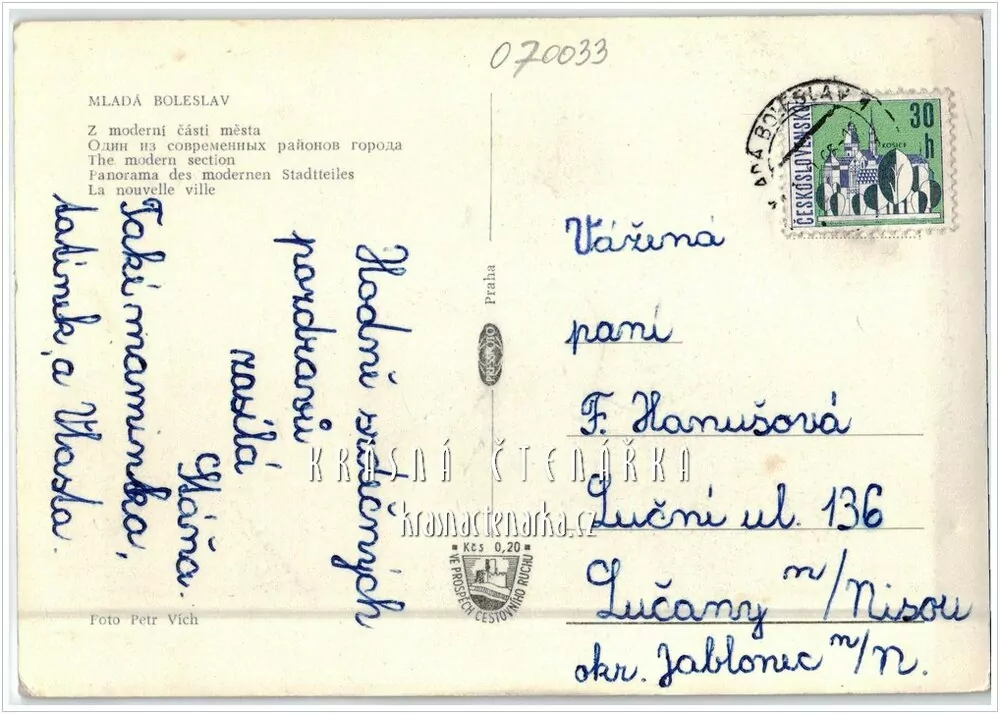 070033
MLADÁ BOLESLAV
Z moderní části města
Один из современных районов города
The modern section
Panorama des modernen Stadtteiles
La nouvelle ville
Hodně srdečných
pozdravů
zasílá
Stáňa.
Také maminka,
tatínek a Vlasta.
Foto Petr Vích
Praha
KRÁSNÁ ČTENÁŘKA
krasnactenarka.cz
Kčs 0,20
VE PROSPĚCH CESTOVNÍHO RUCHU
BOLESLAV 1
ČESKOSLOVENSKO
30
h
KOŠICE
Vážená
paní
F. Hanušová
Luční ul. 136
Lučany n/Nisou
okr. Jablonec n/N.